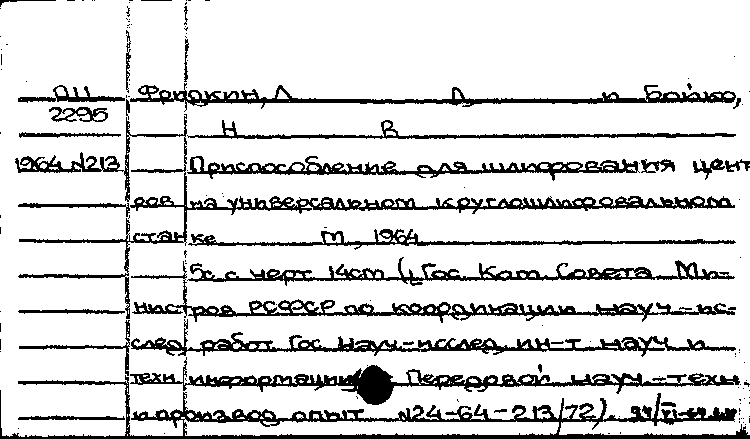 ПЦ Фридкин, Л Д и Бойко,
2295
Н В
1964 N213 Приспособление для шлифования цент
ров на универсальном круглошлифовальном
станке М, 1964
5с с черт 14см (Гос Ком Совета Ми-
нистров РСФСР по координации науч-ис-
след работ Гос науч-исслед ин-т науч и
техн информации Передовой науч-техн
и производ опыт N24-64-213/72).